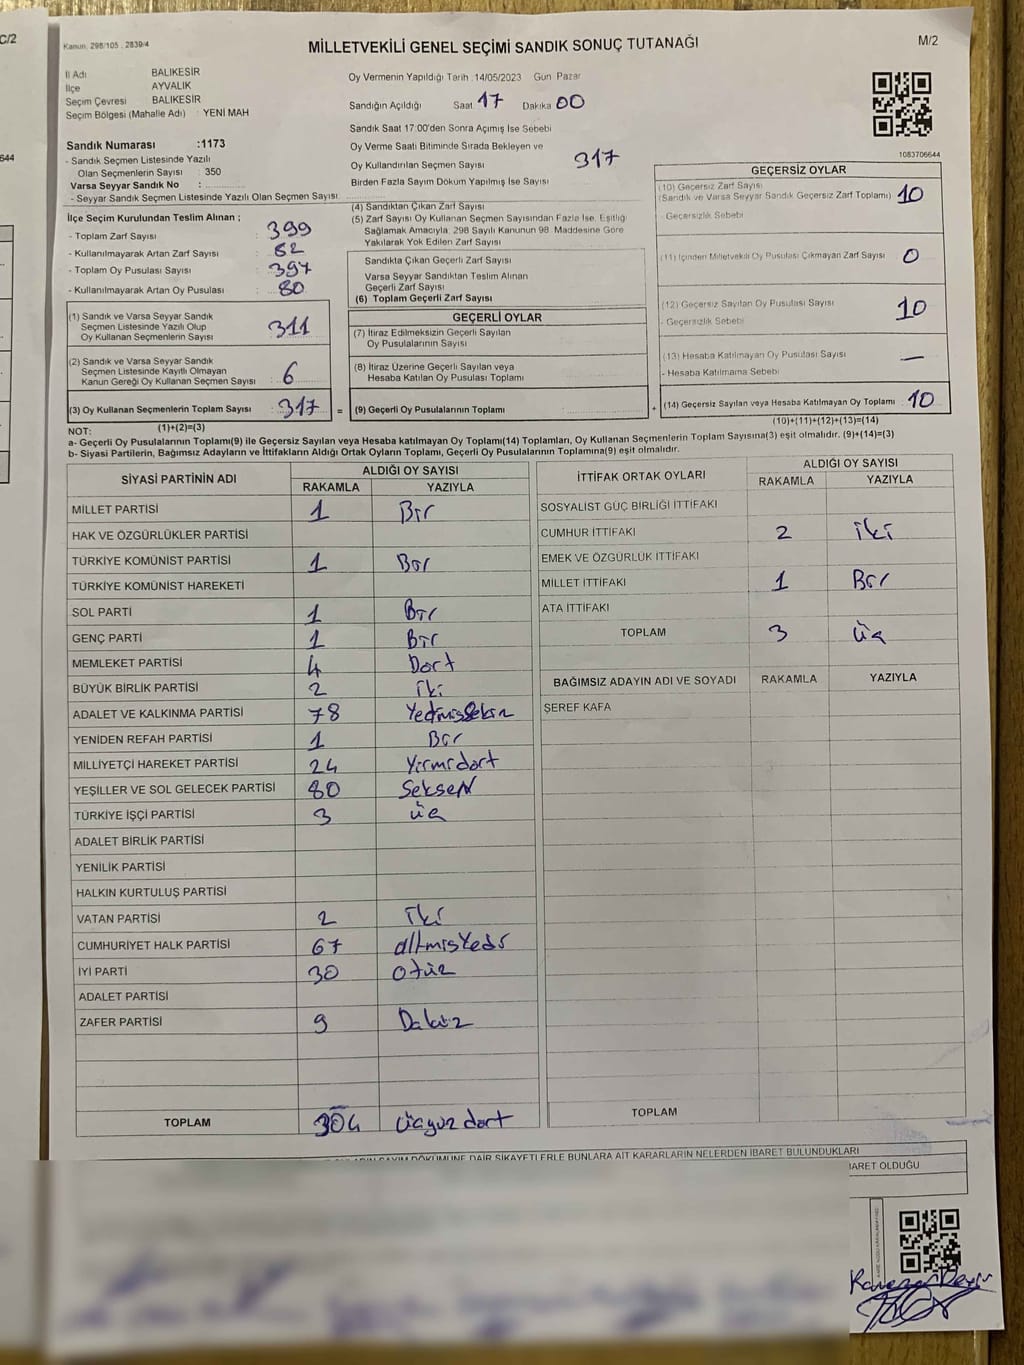 C/2
644
Kanun. 298/105 . 2839/4
MİLLETVEKİLİ GENEL SEÇİMİ SANDIK SONUÇ TUTANAĞI
M/2
İl Adı BALIKESİR
İlçe AYVALIK
Seçim Çevresi BALIKESİR
Seçim Bölgesi (Mahalle Adı) : YENİ MAH
Sandık Numarası :1173
- Sandık Seçmen Listesinde Yazılı
Olan Seçmenlerin Sayısı : 350
Varsa Seyyar Sandık No :
- Seyyar Sandık Seçmen Listesinde Yazılı Olan Seçmen Sayısı
İlçe Seçim Kurulundan Teslim Alınan ;
- Toplam Zarf Sayısı : 399
- Kullanılmayarak Artan Zarf Sayısı : 82
- Toplam Oy Pusulası Sayısı : 397
- Kullanılmayarak Artan Oy Pusulası : 80
(1) Sandık ve Varsa Seyyar Sandık
Seçmen Listesinde Yazılı Olup
Oy Kullanan Seçmenlerin Sayısı : 311
(2) Sandık ve Varsa Seyyar Sandık
Seçmen Listesinde Kayıtlı Olmayan
Kanun Gereği Oy Kullanan Seçmen Sayısı : 6
(3) Oy Kullanan Seçmenlerin Toplam Sayısı : 317
(1)+(2)=(3)
Oy Vermenin Yapıldığı Tarih :14/05/2023 Gün Pazar
Sandığın Açıldığı Saat 17 Dakika 00
Sandık Saat 17:00'den Sonra Açımış İse Sebebi
Oy Verme Saati Bitiminde Sırada Bekleyen ve
Oy Kullandırılan Seçmen Sayısı 317
Birden Fazla Sayım Döküm Yapılmış İse Sayısı
(4) Sandıktan Çıkan Zarf Sayısı
(5) Zarf Sayısı Oy Kullanan Seçmen Sayısından Fazla İse, Eşitliği
Sağlamak Amacıyla, 298 Sayılı Kanunun 98. Maddesine Göre
Yakılarak Yok Edilen Zarf Sayısı
Sandıkta Çıkan Geçerli Zarf Sayısı
Varsa Seyyar Sandıktan Teslim Alınan
Geçerli Zarf Sayısı
(6) Toplam Geçerli Zarf Sayısı
GEÇERLİ OYLAR
(7) İtiraz Edilmeksizin Geçerli Sayılan
Oy Pusulalarının Sayısı
(8) İtiraz Üzerine Geçerli Sayılan veya
Hesaba Katılan Oy Pusulası Toplamı
= (9) Geçerli Oy Pusulalarının Toplamı
1083706644
GEÇERSİZ OYLAR
(10) Geçersiz Zarf Sayısı
(Sandık ve Varsa Seyyar Sandık Geçersiz Zarf Toplamı) 10
- Geçersizlik Sebebi
(11) İçinden Milletvekili Oy Pusulası Çıkmayan Zarf Sayısı 0
(12) Geçersiz Sayılan Oy Pusulası Sayısı 10
- Geçersizlik Sebebi
(13) Hesaba Katılmayan Oy Pusulası Sayısı —
- Hesaba Katılmama Sebebi
+ (14) Geçersiz Sayılan veya Hesaba Katılmayan Oy Toplamı 10
(10)+(11)+(12)+(13)=(14)
NOT:
a- Geçerli Oy Pusulalarının Toplamı(9) ile Geçersiz Sayılan veya Hesaba katılmayan Oy Toplamı(14) Toplamları, Oy Kullanan Seçmenlerin Toplam Sayısına(3) eşit olmalıdır. (9)+(14)=(3)
b- Siyasi Partilerin, Bağımsız Adayların ve İttifakların Aldığı Ortak Oyların Toplamı, Geçerli Oy Pusulalarının Toplamına(9) eşit olmalıdır.
SİYASİ PARTİNİN ADI ALDIĞI OY SAYISI
RAKAMLA YAZIYLA
MİLLET PARTİSİ 1 Bir
HAK VE ÖZGÜRLÜKLER PARTİSİ
TÜRKİYE KOMÜNİST PARTİSİ 1 Bir
TÜRKİYE KOMÜNİST HAREKETİ
SOL PARTİ 1 Bir
GENÇ PARTİ 1 Bir
MEMLEKET PARTİSİ 4 Dort
BÜYÜK BİRLİK PARTİSİ 2 iki
ADALET VE KALKINMA PARTİSİ 78 Yedmissekin
YENİDEN REFAH PARTİSİ 1 Bir
MİLLİYETÇİ HAREKET PARTİSİ 24 Yirmidort
YEŞİLLER VE SOL GELECEK PARTİSİ 80 Seksen
TÜRKİYE İŞÇİ PARTİSİ 3 üç
ADALET BİRLİK PARTİSİ
YENİLİK PARTİSİ
HALKIN KURTULUŞ PARTİSİ
VATAN PARTİSİ 2 iki
CUMHURİYET HALK PARTİSİ 67 altmisYedi
İYİ PARTİ 30 otüz
ADALET PARTİSİ
ZAFER PARTİSİ 9 Dakuz
TOPLAM 304 üçyuz dort
İTTİFAK ORTAK OYLARI ALDIĞI OY SAYISI
RAKAMLA YAZIYLA
SOSYALİST GÜÇ BİRLİĞİ İTTİFAKI
CUMHUR İTTİFAKI 2 iki
EMEK VE ÖZGÜRLÜK İTTİFAKI
MİLLET İTTİFAKI 1 Bir
ATA İTTİFAKI
TOPLAM 3 üç
BAĞIMSIZ ADAYIN ADI VE SOYADI RAKAMLA YAZIYLA
ŞEREF KAFA
TOPLAM
DÖKÜMÜNE DAİR ŞİKAYETLERLE BUNLARA AİT KARARLARIN NELERDEN İBARET BULUNDUKLARI
İBARET OLDUĞU